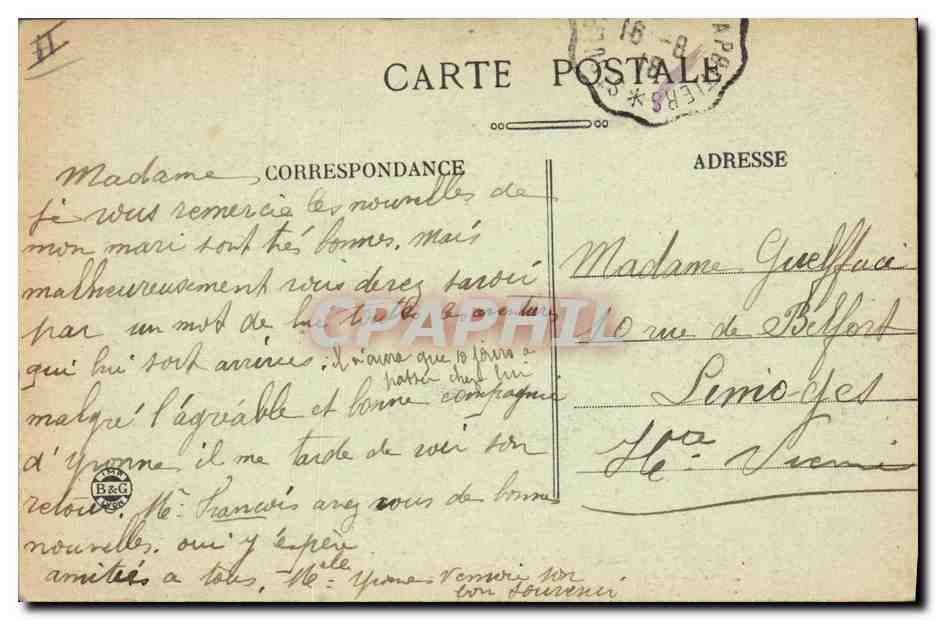 II
CARTE POSTALE
16 -8
18
CORRESPONDANCE
ADRESSE
Madame
je vous remercie les nouvelles de
mon mari sont très bonnes. Mais
malheureusement vous devez savoir
par un mot de lui toutes les aventures
qui lui sont arrivées. il n'aura que 10 jours a
passer chez lui
malgré l'agréable et bonne compagnie
d'Yvonne il me tarde de voir son
retour. Mr François avez vous de bonne
nouvelles. oui j'éspère
amitiés a tous. Mlle Yvonne son
bon souvenir
Madame Guelffucci
10 rue de Belfort
Limoges
Hte Vienne
B&G
CPAPHIL